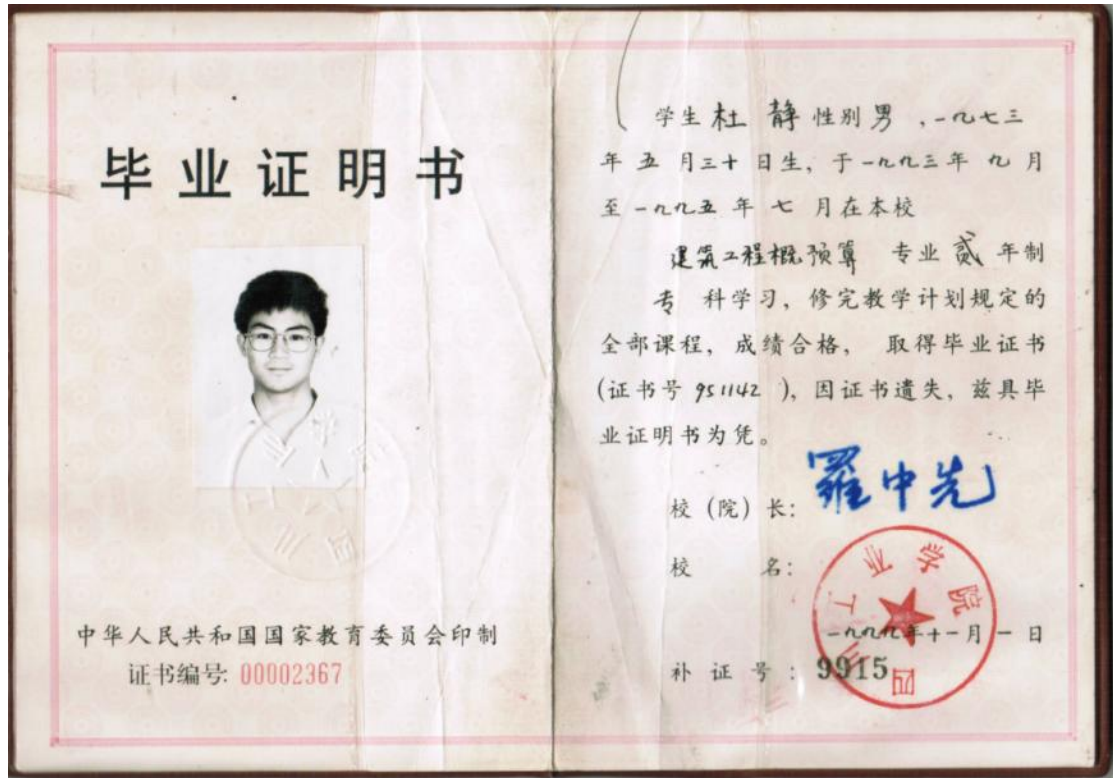 毕业证明书
中华人民共和国国家教育委员会印制
证书编号: 00002367
学生 杜 静 性别 男 , 一九七三
年 五 月三十 日生, 于一九九三年 九 月
至一九九五 年 七 月在本校
建筑工程概预算 专业 贰 年制
专 科学习, 修完教学计划规定的
全部课程, 成绩合格, 取得毕业证书
(证书号 951142 ), 因证书遗失, 兹具毕
业证明书为凭。
校 (院) 长: 羅中先
校 名:
四川工业学院
一九九九年十一月一日
补 证 号 : 9915